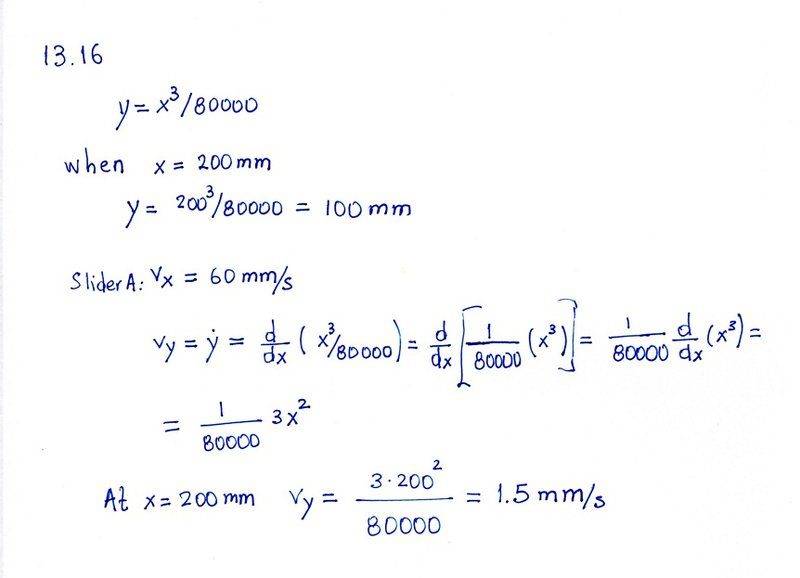 13.16
y = x³/80000
when x = 200 mm
y = 200³/80000 = 100 mm
Slider A: Vx = 60 mm/s
Vy = ẏ = d/dx (x³/80000) = d/dx [1/80000 (x³)] = 1/80000 d/dx (x³) =
= 1/80000 3x²
At x = 200 mm Vy = 3·200²/80000 = 1.5 mm/s